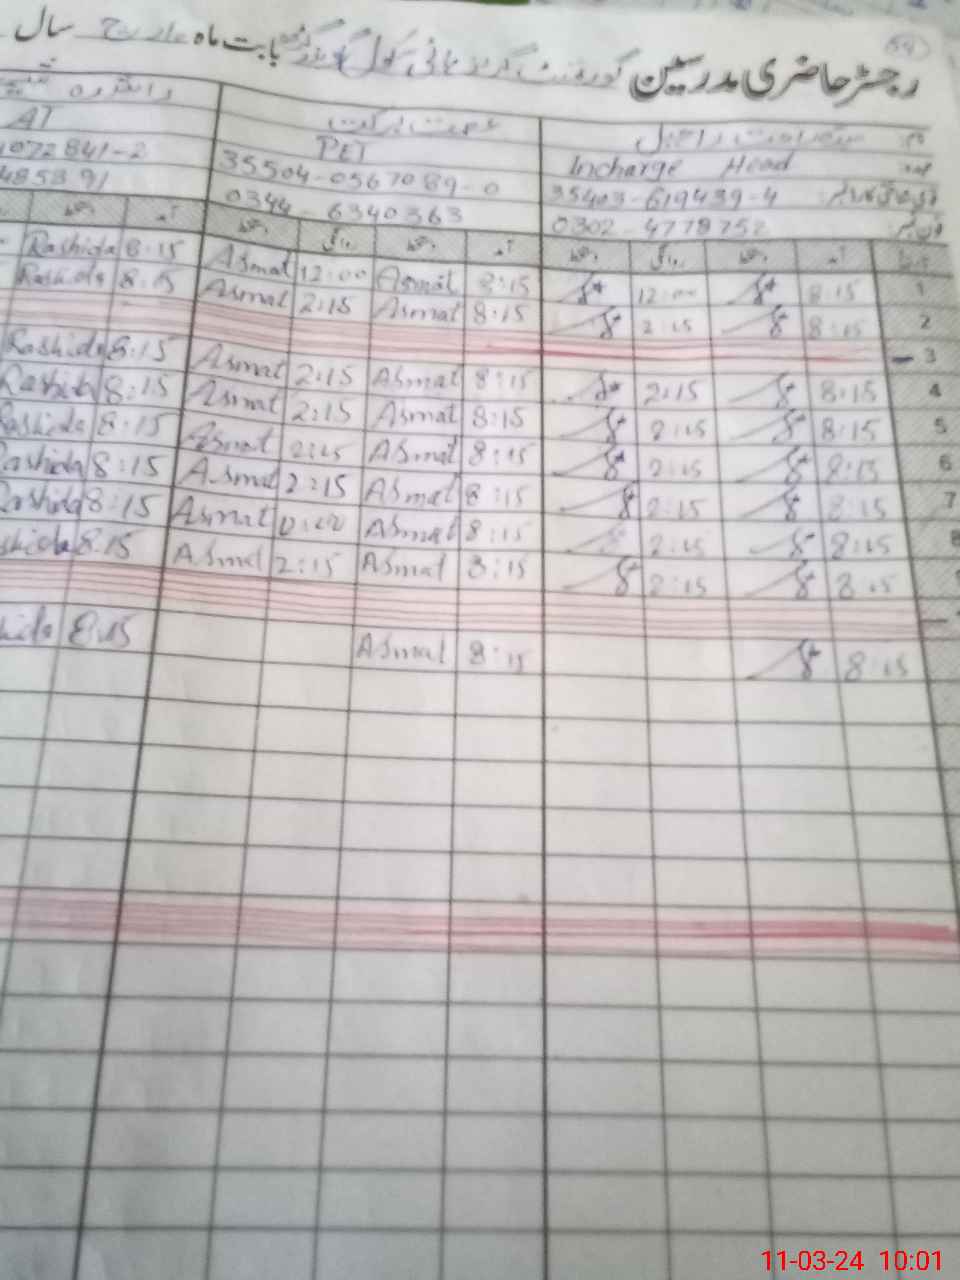 54
رجسٹر حاضری مدرسین گورنمنٹ گرلز ہائی سکول بابت ماہ مارچ سال
نام عصمت برکت
عہدہ Incharge Head PET AT
35403-619439-4 35504-0567089-0 1072841-2
فون نمبر 0302-4778752 0344-6340363 485891
تاریخ آمد دستخط روانگی دستخط آمد دستخط روانگی دستخط آمد دستخط
1 8:15 12:00 8:15 Asmat 12:00 Asmat 8:15 Rashida
2 8:15 2:15 8:15 Asmat 2:15 Asmat 8:15 Rashida
3
4 8:15 2:15 8:15 Asmat 2:15 Asmat 8:15 Rashida
5 8:15 2:15 8:15 Asmat 2:15 Asmat 8:15 Rashida
6 8:15 2:15 8:15 Asmat 2:15 Asmat 8:15 Rashida
7 8:15 2:15 8:15 Asmat 2:15 Asmat 8:15 Rashida
8 8:15 2:15 8:15 Asmat Asmat 8:15 Rashida
8:15 2:15 8:15 Asmat 2:15 Asmat 8:15 shida
8:15 8:15 Asmat 8:15 hida
11-03-24 10:01